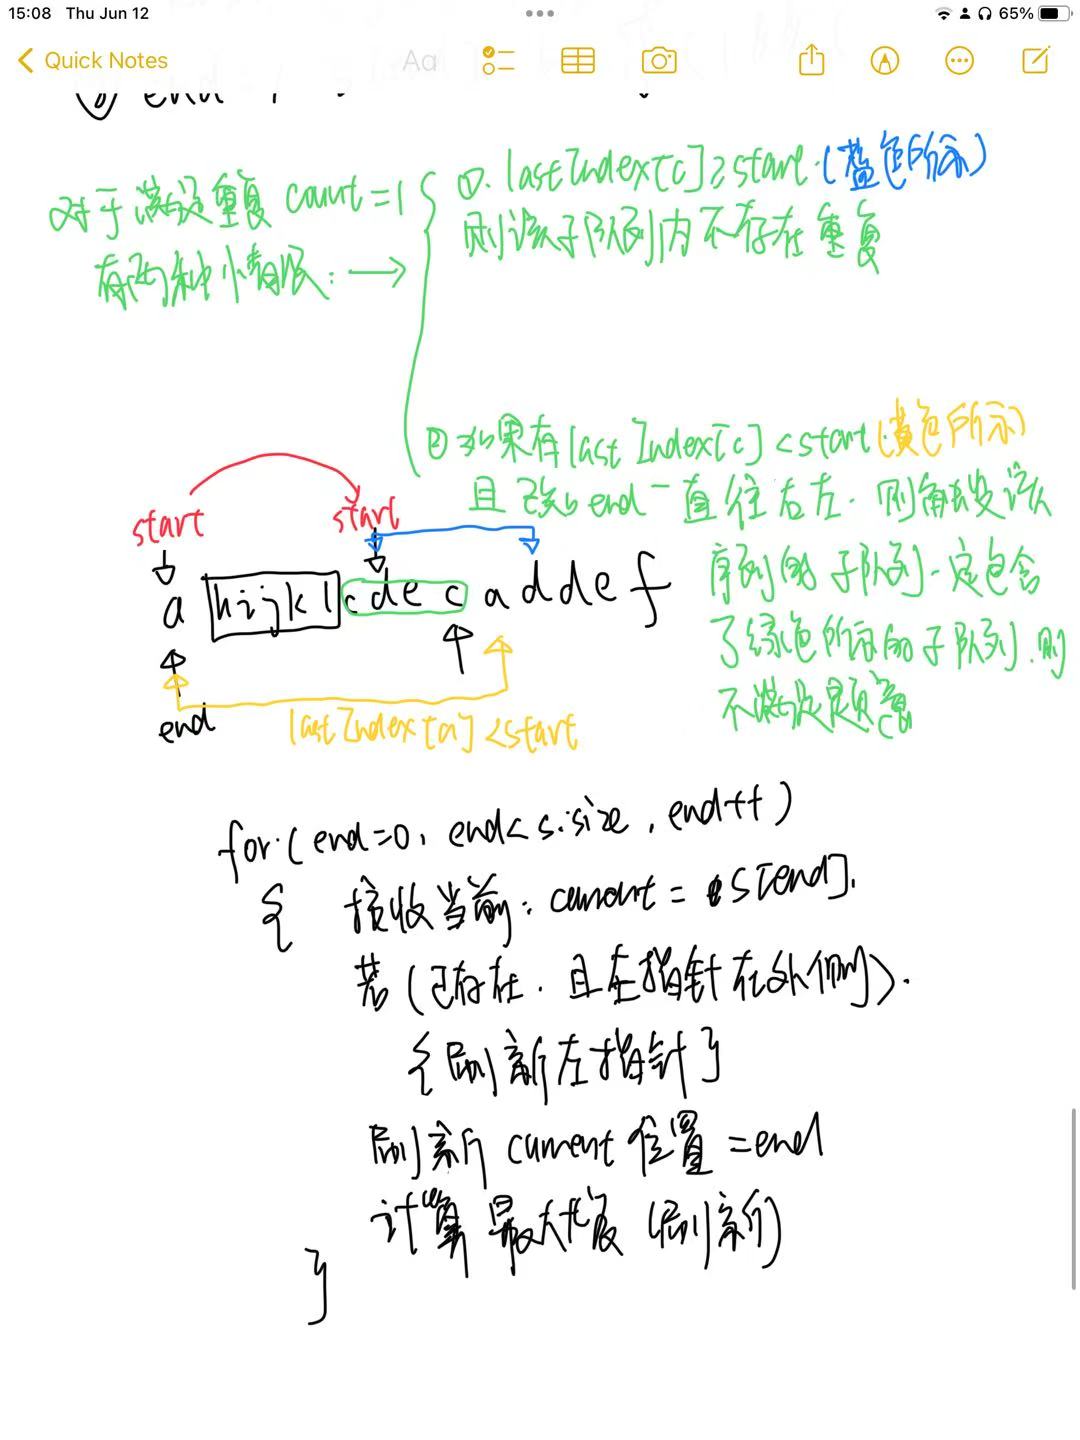 15:08 Thu Jun 12
65%
Quick Notes
Aa
对于满足重复 count=1
有两种情况: →
①. lastIndex[c]≥start.(蓝色所示)
则该子队列内不存在重复
② 如果有lastIndex[c]<start(黄色所示)
且 end一直往右左. 则触发该
序列的子队列一定包含
了绿色所示的子队列.则
不满足题意
start start
a hijkl cdec addef
end
lastIndex[a]<start
for.(end=0, end<s.size, end++)
{ 接收当前: current = s[end].
若(已存在.且左指针在外侧).
{刷新左指针}
刷新 current 位置=end
计算最大长度(刷新)
}